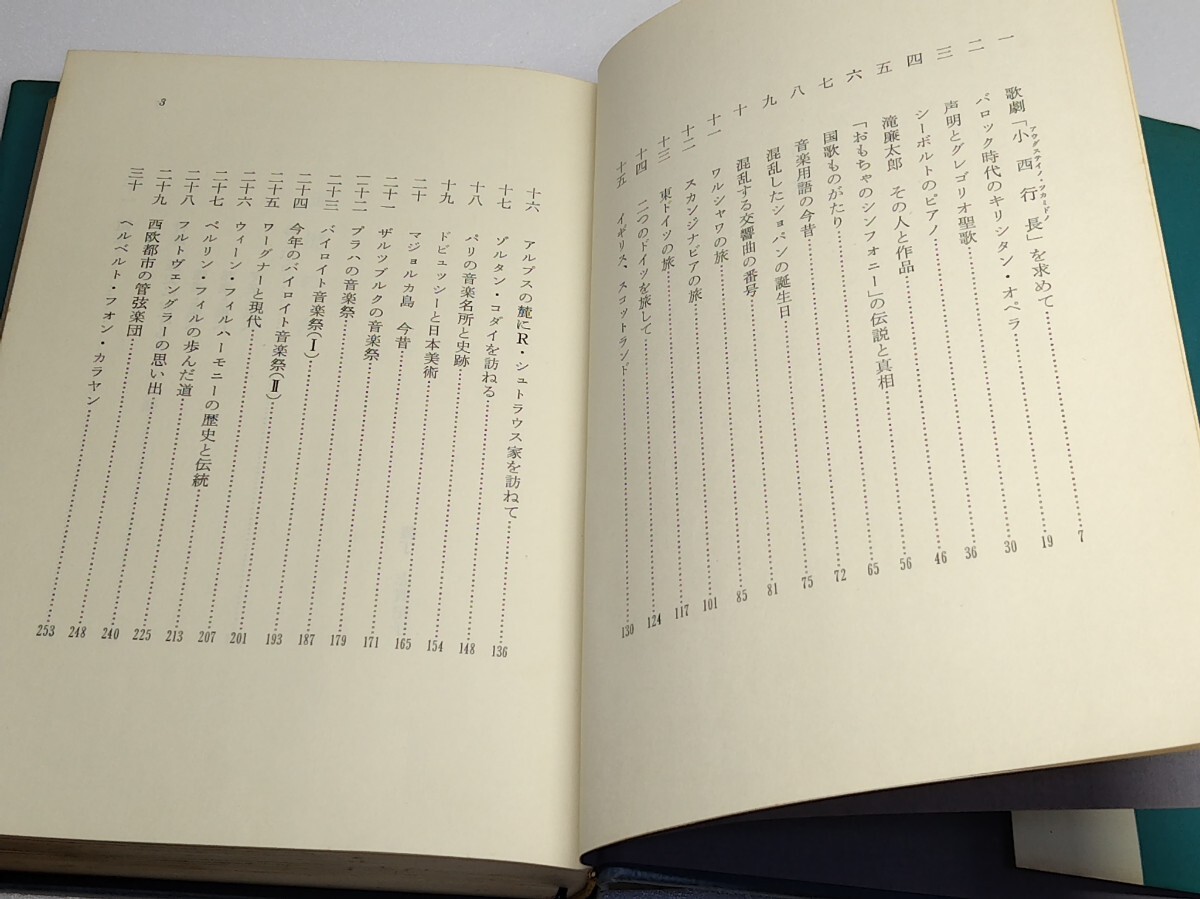 一 歌劇「小西行長」を求めて……7
アウグステイノ・ツカードノ
二 バロック時代のキリシタン・オペラ……19
三 声明とグレゴリオ聖歌……30
四 シーボルトのピアノ……36
五 滝廉太郎 その人と作品……46
六 「おもちゃのシンフォニー」の伝説と真相……56
七 国歌ものがたり……65
八 音楽用語の今昔……72
九 混乱したショパンの誕生日……75
十 混乱する交響曲の番号……81
十一 ワルシャワの旅……85
十二 スカンジナビアの旅……101
十三 東ドイツの旅……117
十四 二つのドイツを旅して……124
十五 イギリス、スコットランド……130
十六 アルプスの麓にR・シュトラウス家を訪ねて……136
十七 ゾルタン・コダイを訪ねる……148
十八 パリの音楽名所と史跡……154
十九 ドビュッシーと日本美術……165
二十 マジョルカ島 今昔……171
二十一 ザルツブルクの音楽祭……179
二十二 プラハの音楽祭……187
二十三 バイロイト音楽祭(Ⅰ)……193
二十四 今年のバイロイト音楽祭(Ⅱ)……201
二十五 ワーグナーと現代……207
二十六 ウィーン・フィルハーモニーの歴史と伝統……213
二十七 ベルリン・フィルの歩んだ道……225
二十八 フルトヴェングラーの思い出……240
二十九 西欧都市の管弦楽団……248
三十 ヘルベルト・フォン・カラヤン……253
3